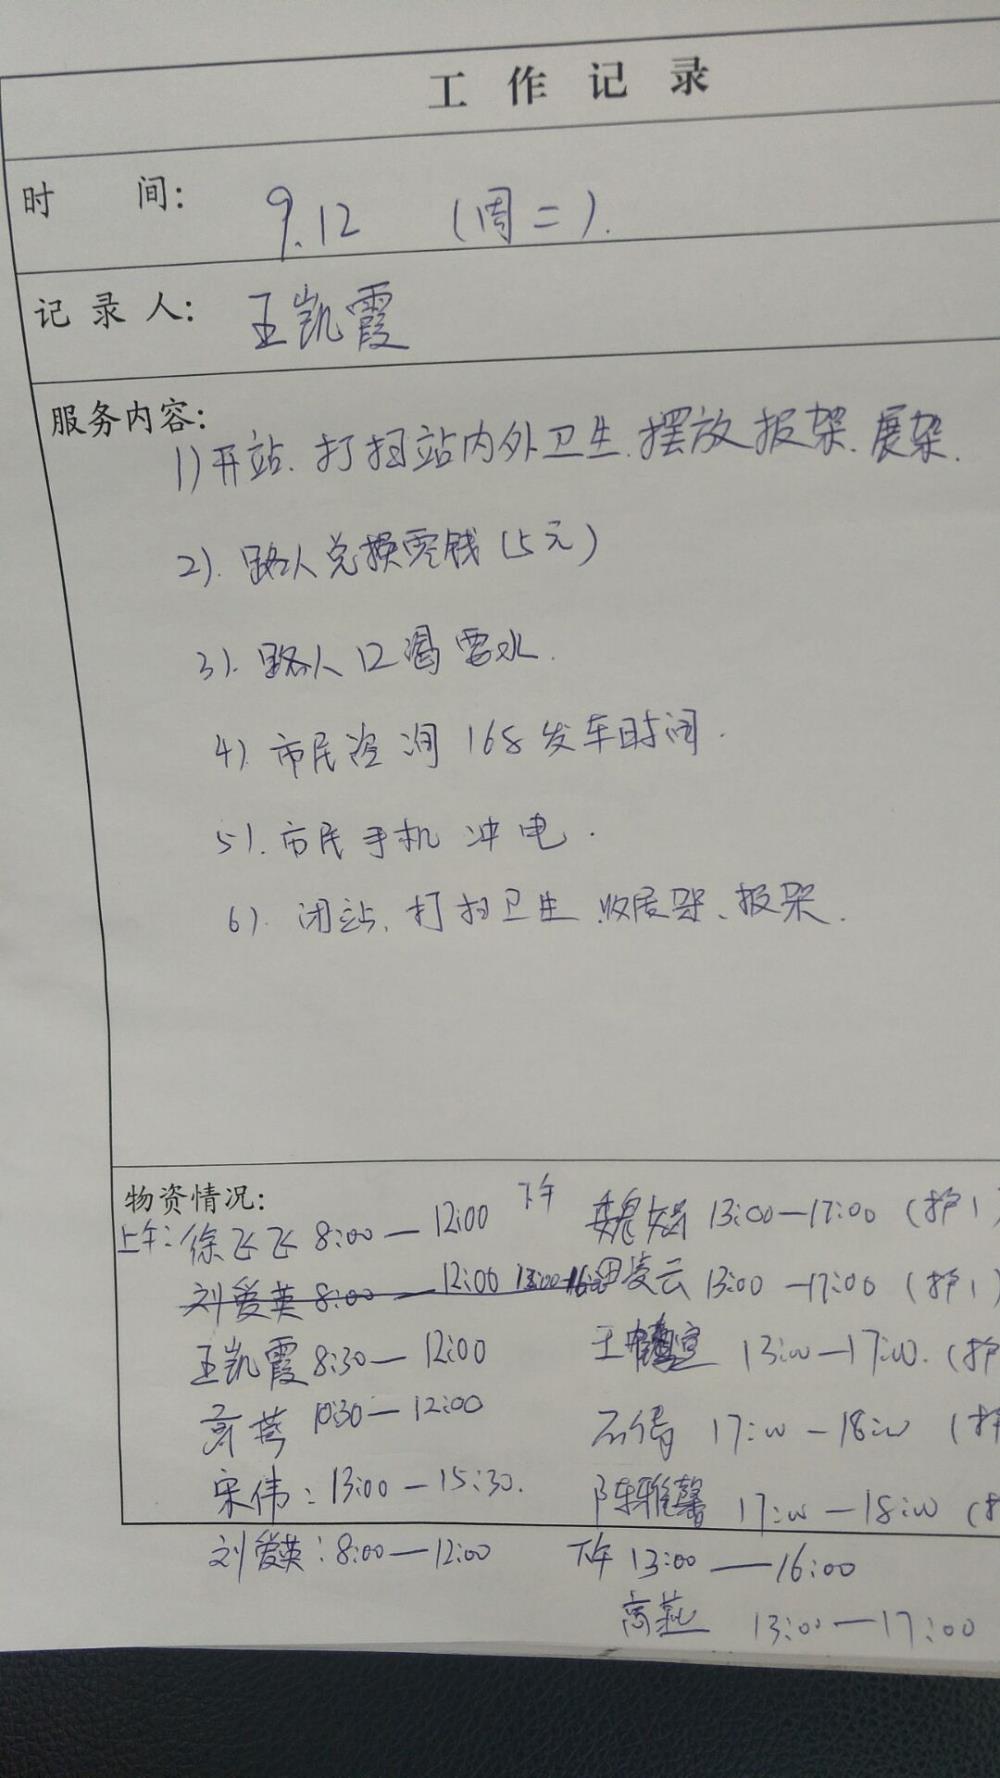 工作记录
时 间: 9.12 (周二).
记录人: 王凯霞
服务内容:
1)开站、打扫站内外卫生、摆放报架、展架.
2).路人兑换零钱(5元)
3).路人口渴需水.
4).市民咨询168发车时间.
5).市民手机冲电.
6).闭站、打扫卫生、收展架、报架.
物资情况:
上午:徐飞飞 8:00—12:00 下午
刘爱英 8:00—12:00 13:00-16:00
王凯霞 8:30—12:00
高燕 10:30—12:00
宋伟:13:00—15:30.
刘爱英:8:00—12:00 下午 13:00—16:00
魏 13:00—17:00 (护1)
田凌云 13:00—17:00 (护1)
王 13:00—17:00.(护
石倩 17:00—18:00 (护
陈雅馨 17:00—18:00 (
高燕 13:00—17:00